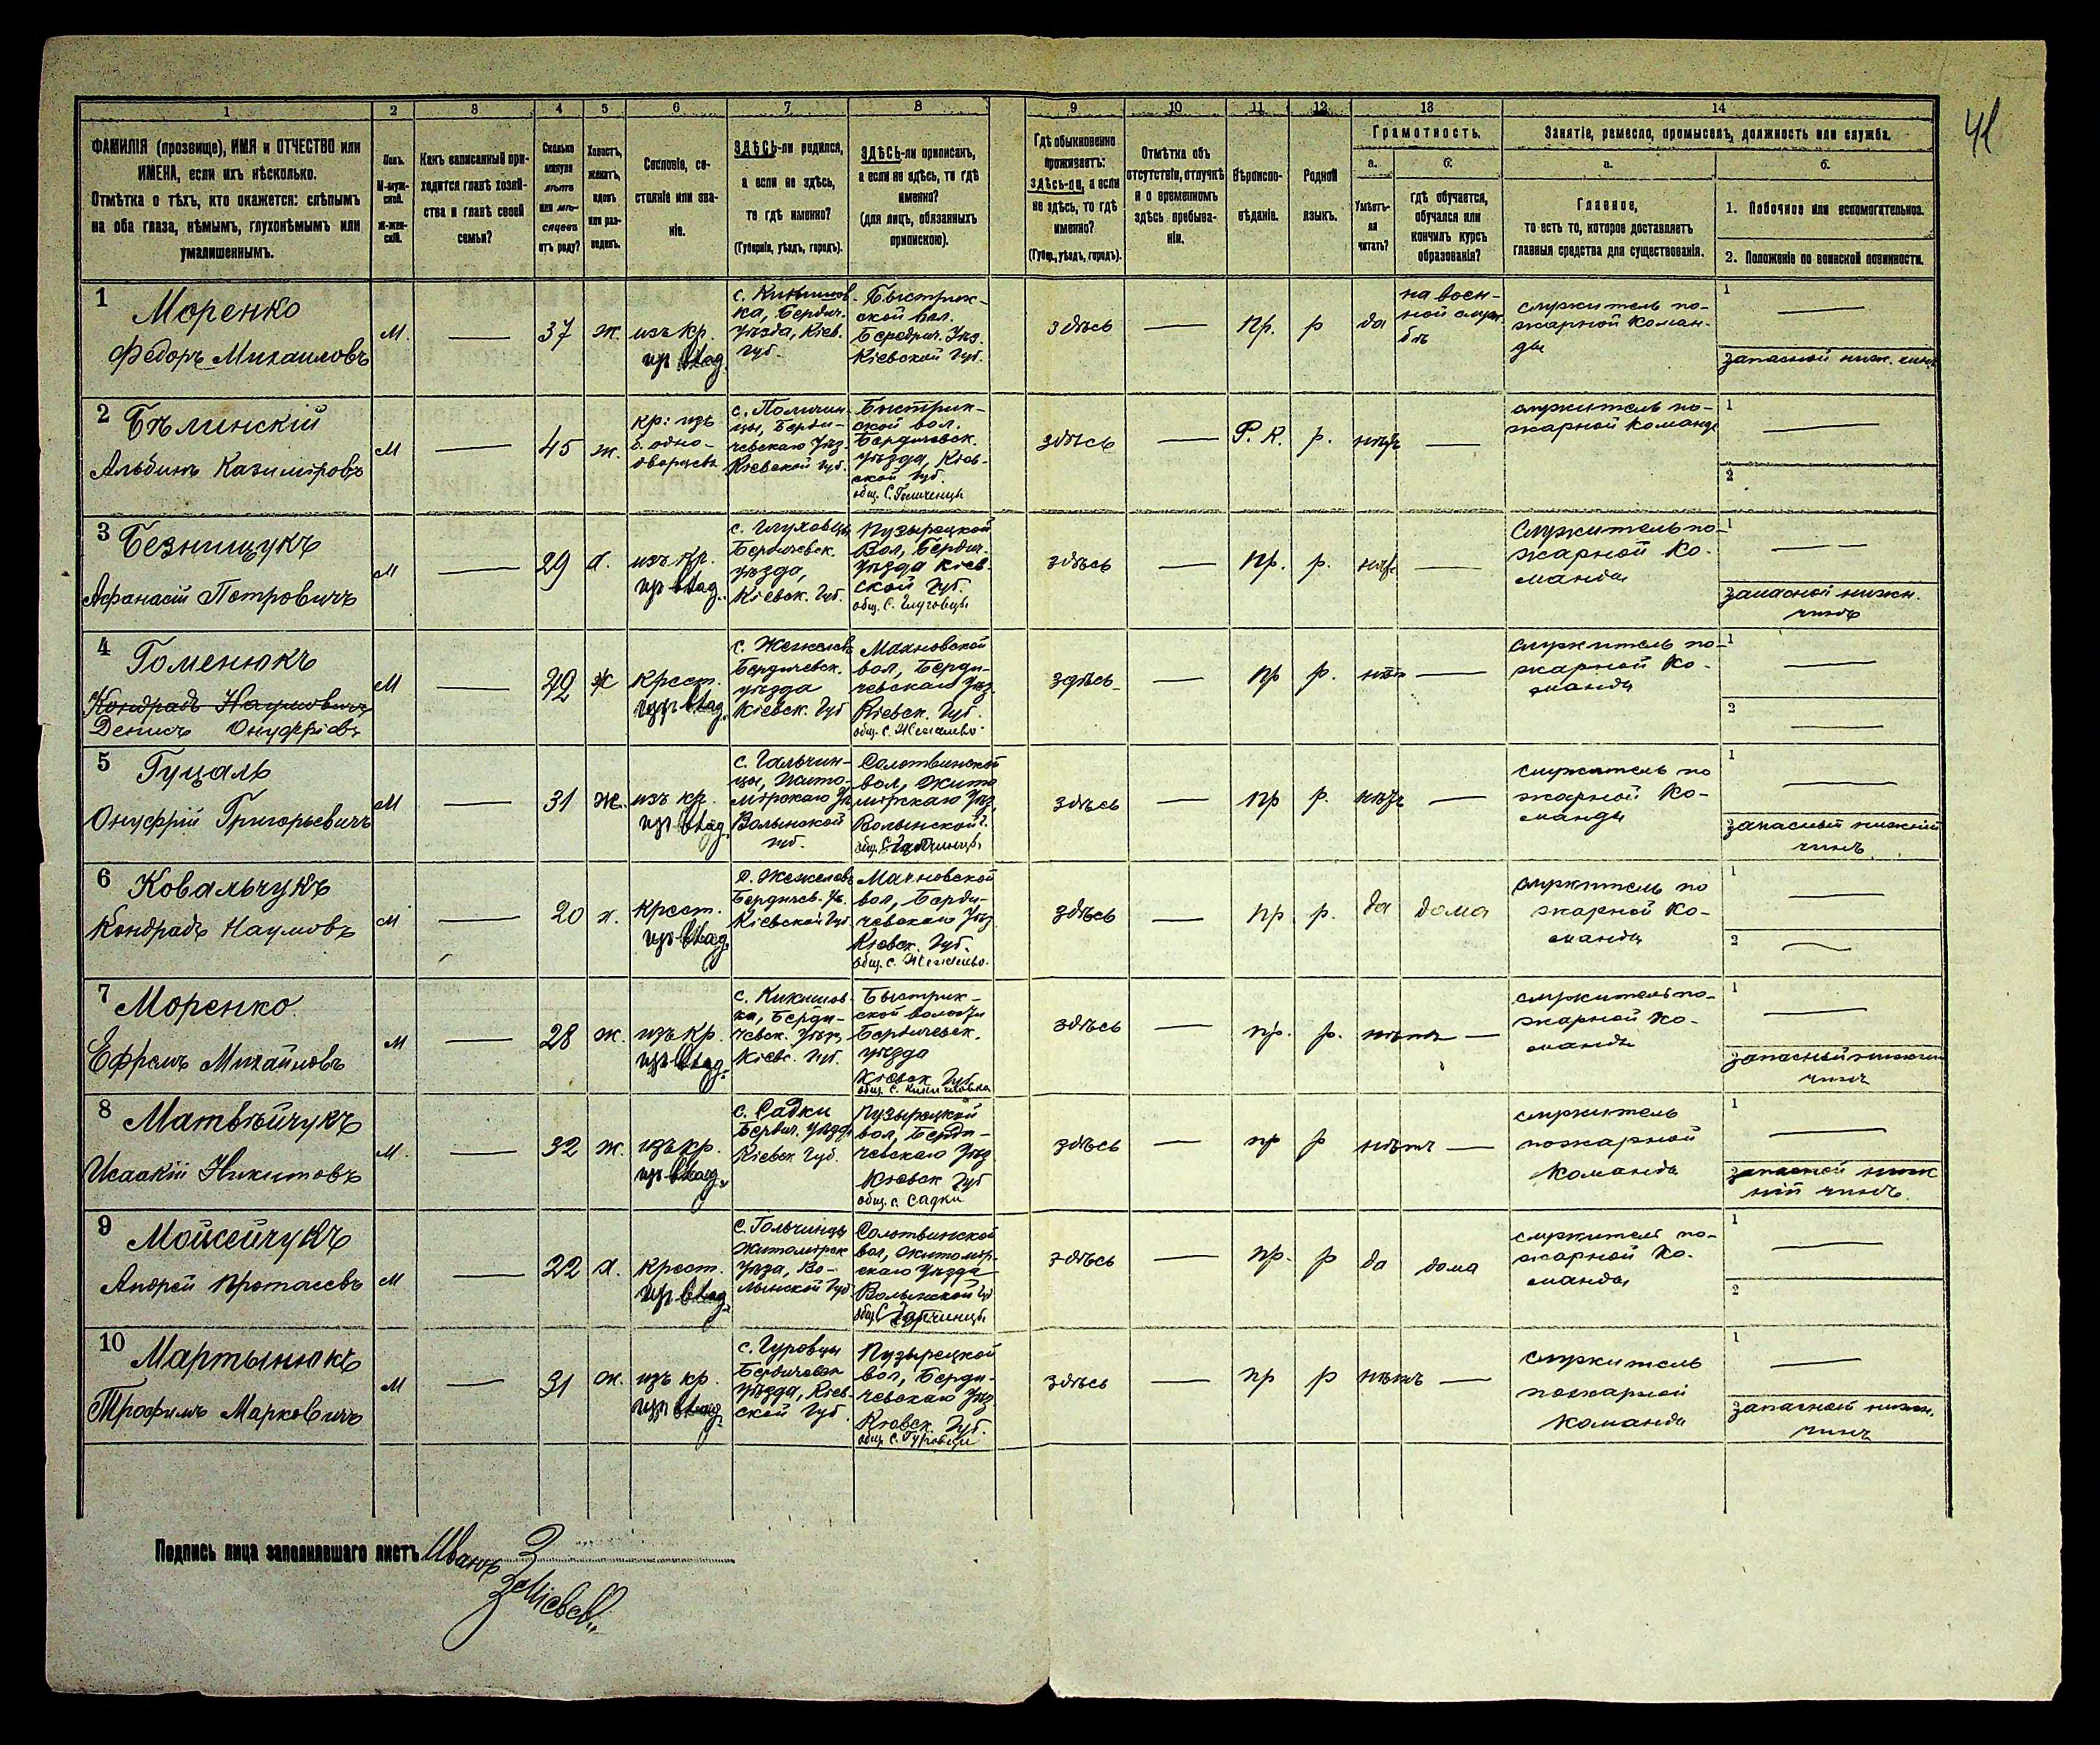 41
1 2 3 4 5 6 7 8 9 10 11 12 13 14
ФАМИЛІЯ (прозвище), ИМЯ и ОТЧЕСТВО или
ИМЕНА, если ихъ нѣсколько.
Отмѣтка о тѣхъ, кто окажется: слѣпымъ
на оба глаза, нѣмымъ, глухонѣмымъ или
умалишеннымъ.
Полъ.
М-муж-
ской.
Ж-жен-
скій.
Какъ записанный при-
ходится главѣ хозяй-
ства и главѣ своей
семьи?
Сколько
минуло
лѣтъ
или мѣ-
сяцевъ
отъ роду?
Холостъ,
женатъ,
вдовъ
или раз-
веденъ.
Сословіе, со-
стояніе или зва-
ніе.
ЗДѢСЬ-ли родился,
а если не здѣсь,
то гдѣ именно?
(Губернія, уѣздъ, городъ).
ЗДѢСЬ-ли приписанъ,
а если не здѣсь, то гдѣ
именно?
(для лицъ, обязанныхъ
припискою).
Гдѣ обыкновенно
проживаетъ:
здѣсь-ли, а если
не здѣсь, то гдѣ
именно?
(Губер., уѣздъ, городъ).
Отмѣтка объ
отсутствіи, отлучкѣ
и о временномъ
здѣсь пребыва-
ніи.
Вѣроиспо-
вѣданіе.
Родной
языкъ.
Грамотность.
а. б.
Умѣетъ-
ли
читать?
гдѣ обучается,
обучался или
кончилъ курсъ
образованія?
Занятіе, ремесло, промыселъ, должность или служба.
а. б.
Главное,
то есть то, которое доставляетъ
главныя средства для существованія.
1. Побочное или вспомогательное.
2. Положеніе по воинской повинности.
1
Моренко
Федоръ Михаиловъ
М. — 37 ж. изъ кр.
из влад.
с. Кикишов-
ка, Бердич.
уѣзда, Кіев.
губ.
Быстрик-
ской вол.
Бердич. Уѣз.
Кіевской Губ.
здѣсь — пр. р да
на воен-
ной служ-
бѣ
служитель по-
жарной коман-
ды
1 —
запасной ниж. чинъ
2
Бѣлинскій
Альбинъ Казиміровъ
М — 45 ж.
кр: изъ
б. одно-
дворцевъ
с. Поличин-
цы, Берди-
чевскаго Уѣз.
Кіевской губ.
Быстрик-
ской вол.
Бердичевск.
уѣзда, Кіев-
ской губ.
здѣсь — Р. К. р. нѣтъ —
служитель по-
жарной команд
1 —
2
3
Безнищукъ
Афанасій Петровичъ
М — 29 х. изъ кр.
из влад.
с. Глуховцы
Бердичевск.
уѣзда,
Кіевск. Губ.
Пузырецкой
Вол, Бердич.
Уѣзда Кіев-
ской Губ.
общ. С. Глуховцы
здѣсь — пр. р. нѣт —
Служитель по-
жарной ко-
манды
1 — —
запасной нижн.
чинъ
4
Гоменюкъ
Кондрадъ Наумовичъ
Денисъ Онуфріевъ
М — ж крест.
из влад.
с. Жежелевъ
Бердичевск.
уѣзда
Кіевск. Губ
Махновской
вол, Берди-
чевскаго Уѣз.
Кіевск. Губ.
общ. с. Жежелево
здѣсь — пр р. нѣт —
служитель по-
жарной ко-
манды
1 —
2 —
5
Гуцалъ
Онуфрій Григорьевичъ
М — 31 ж. изъ кр.
из влад.
с. Гальчин-
цы, Жито-
мірскаго Уѣ
Волынской
губ.
Солотвинской
вол, Жито
мірскаго Уѣз
Волынской г.
здѣсь — пр р. нѣтъ —
служитель по
жарной ко-
манды
1 —
запасный нижній
чинъ
6
Ковальчукъ
Кондрадъ Наумовъ
М — 20 х. крест.
из влад.
с. Жежелевъ
Бердичев. Уѣ.
Кіевской Губ.
Махновской
вол, Берди-
чевскаго Уѣз
Кіевск. Губ.
общ. с. Жежелево.
здѣсь — пр р. да дома
служитель по
жарной ко-
манды
1 —
2 —
7
Моренко
Ефремъ Михайловъ
М — 28 ж. изъ кр.
изъ влад.
с. Кикишов-
ка, Берди-
чевск. Уѣзд
Кіевс. Губ.
Быстрик-
ской волости
Бердичевск.
уѣзда
Кіевск Губ
общ. с. Кикишовка
здѣсь — пр. р. нѣтъ —
служитель по-
жарной ко-
манды
1 —
запасный нижній
чинъ
8
Матвѣйчукъ
Исаакій Никитовъ
М. — 32 ж. изъ кр.
из влад.
с. Садки
Бердич. уѣзда
Кіевск Губ.
Пузырецкой
вол, Берди-
чевскаго Уѣз.
Кіевск Губ
общ. с. Садки
здѣсь — пр р нѣтъ —
служитель
пожарной
команды
1 —
запасной ниж
ній чинъ.
9
Мойсейчукъ
Андрей Протасевъ
М — 22 х. крест.
из влад.
с. Гольчинцы
Житомірск
Уѣза, Во-
лынской Губ
Солотвинской
вол, житомір-
скаго Уѣзда
Волынской Гу
здѣсь — пр. р да дома
служитель по-
жарной ко-
манды
1 —
2
10
Мартынюкъ
Трофимъ Марковичъ
М — 31 ж. изъ кр.
из влад.
с. Гуровцы
Бердичевск
уѣзда, Кіев-
ской Губ
Пузырецкой
вол, Берди-
чевскаго Уѣз
Кіевск. Губ.
общ. с. Гуровцы
здѣсь — пр р нѣтъ —
служитель
пожарной
команды
1 —
запасной нижн.
чинъ
Подпись лица заполнявшаго листъ Иванъ